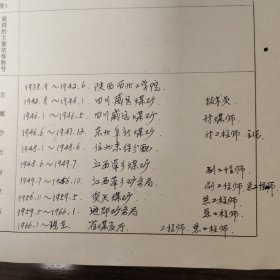 等）
获得的主要荣誉称号
主要学历和经历
1938.9～1942.6. 陕西西北工学院.
1942.8～1946.1. 四川威远煤矿. 技术员
1946.1～1946.5. 四川威远煤矿. 工程师
1946.6～1947.12. 东北阜新煤矿. 付工程师. 主任
1948.1～1948.6. 住北京待分配.
1948.6～1949.7. 江西萍乡煤矿. 副工程师
1949.7～1956.10. 江西萍乡矿务局. 副工程师. 总工程师
1956.11～1959.5. 安源煤矿. 总工程师
1959.5～1966.1. 矿务局. 总工程师
1966.1～现在. 省煤炭厅. 工程师. 总工程师.